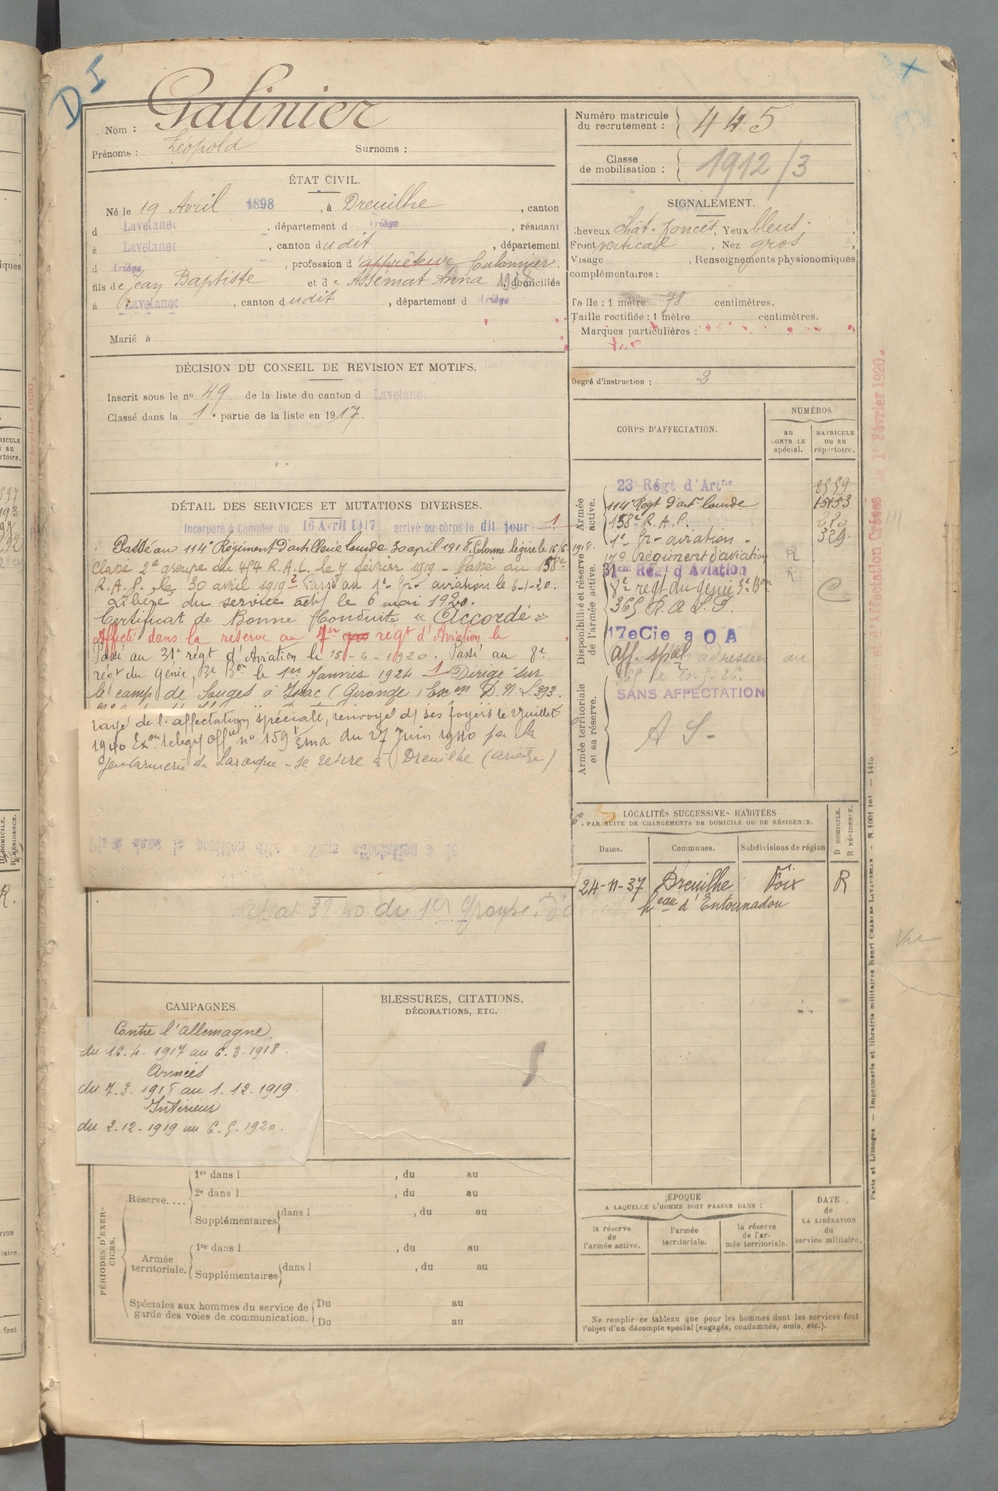 D I
Nom : Galinier
Prénoms : Léopold Surnoms :
Numéro matricule du recrutement : 445
Classe de mobilisation : 1912/3
ÉTAT CIVIL.
Né le 19 Avril 1898, à Dreuilhe, canton
d Lavelanet, département d Ariège, résidant
à Lavelanet, canton dudit, département
d Ariège, profession d'apprêteur Cultonnier
fils de Jean Baptiste et de Assémat Anna, domiciliés
à Lavelanet, canton dudit, département d Ariège
Marié à
SIGNALEMENT.
Cheveux chât. foncés, Yeux bleus;
Front vertical, Nez gros
Visage , Renseignements physionomiques
complémentaires :
Taille : 1 mètre 78 centimètres.
Taille rectifiée : 1 mètre centimètres.
Marques particulières :
Degré d'instruction : 2
DÉCISION DU CONSEIL DE REVISION ET MOTIFS.
Inscrit sous le no 49 de la liste du canton d Lavelanet
Classé dans la 1e partie de la liste en 1917.
DÉTAIL DES SERVICES ET MUTATIONS DIVERSES.
Incorporé à compter du 16 Avril 1917 arrivé au corps le dit jour
Passé au 114e Régiment d'artillerie lourde 30 april 1918. Colonne légère le 16/6 1918.
Classé 2e groupe du 484 R.A.L. le 7 février 1919 - Passé au 158e
R.A.P. le 30 avril 1919 Passé au 1er Gr. aviation le 6-1-20.
Libéré du service actif le 6 mai 1920.
Certificat de Bonne Conduite « Accordé »
Affecté dans la réserve au régt d'Aviation le
Passé au 31e régt d'Aviation le 15-6-1920. Passé au 8e
régt du Génie, 3e Bon le 1er Janvier 1924 Dirigé sur
le camp de Souges à Issac (Gironde)
rayé de l'affectation spéciale, renvoyé ds ses foyers le 2 juillet
1940 Exon télég. Offel no 159 Ema du 27 Juin 1940 par la
Gendarmerie de Laroque - se retire à Dreuilhe (Ariège)
CORPS D'AFFECTATION.
NUMÉROS
au CONTROLE spécial.
MATRICULE ou au répertoire.
Armée active.
Disponibilité et réserve de l'armée active.
Armée territoriale et sa réserve.
23 Régt d'Artie
114e Régt d'art lourde
158e R.A.P.
1er Gr. aviation
31em Régt d'Aviation R
8e régt du génie 3e Bon
365 R.A.L.P.
17e Cie a O A
Aff. spéle
SANS AFFECTATION
A S -
LOCALITÉS SUCCESSIVES HABITÉES
PAR SUITE DE CHANGEMENTS DE DOMICILE OU DE RÉSIDENCE.
Dates. Communes. Subdivisions de région D. DOMICILE. R. RÉSIDENCE.
24-11-37 Dreuilhe Foix R
heau d'Entounadou
CAMPAGNES.
Contre l'allemagne
du 16.4.1917 au 6.3.1918
Armées
du 7.3.1918 au 1.12.1919
Intérieur
du 2-12-1919 au 6.5.1920.
BLESSURES, CITATIONS,
DÉCORATIONS, ETC.
PÉRIODES D'EXERCICES.
Réserve....
1re dans l , du au
2e dans l , du au
Supplémentaires dans l , du au
Armée territoriale.
1re dans l , du au
Supplémentaires dans l , du au
Spéciales aux hommes du service de garde des voies de communication.
Du au
Du au
ÉPOQUE
A LAQUELLE L'HOMME DOIT PASSER DANS :
la réserve de l'armée active.
l'armée territoriale.
la réserve de l'armée territoriale.
DATE de LA LIBÉRATION du service militaire.
Ne remplir ce tableau que pour les hommes dont les services font
l'objet d'un décompte spécial (engagés, condamnés, omis, etc.).
Paris et Limoges. — Imprimerie et librairie militaires Henri CHARLES-LAVAUZELLE.